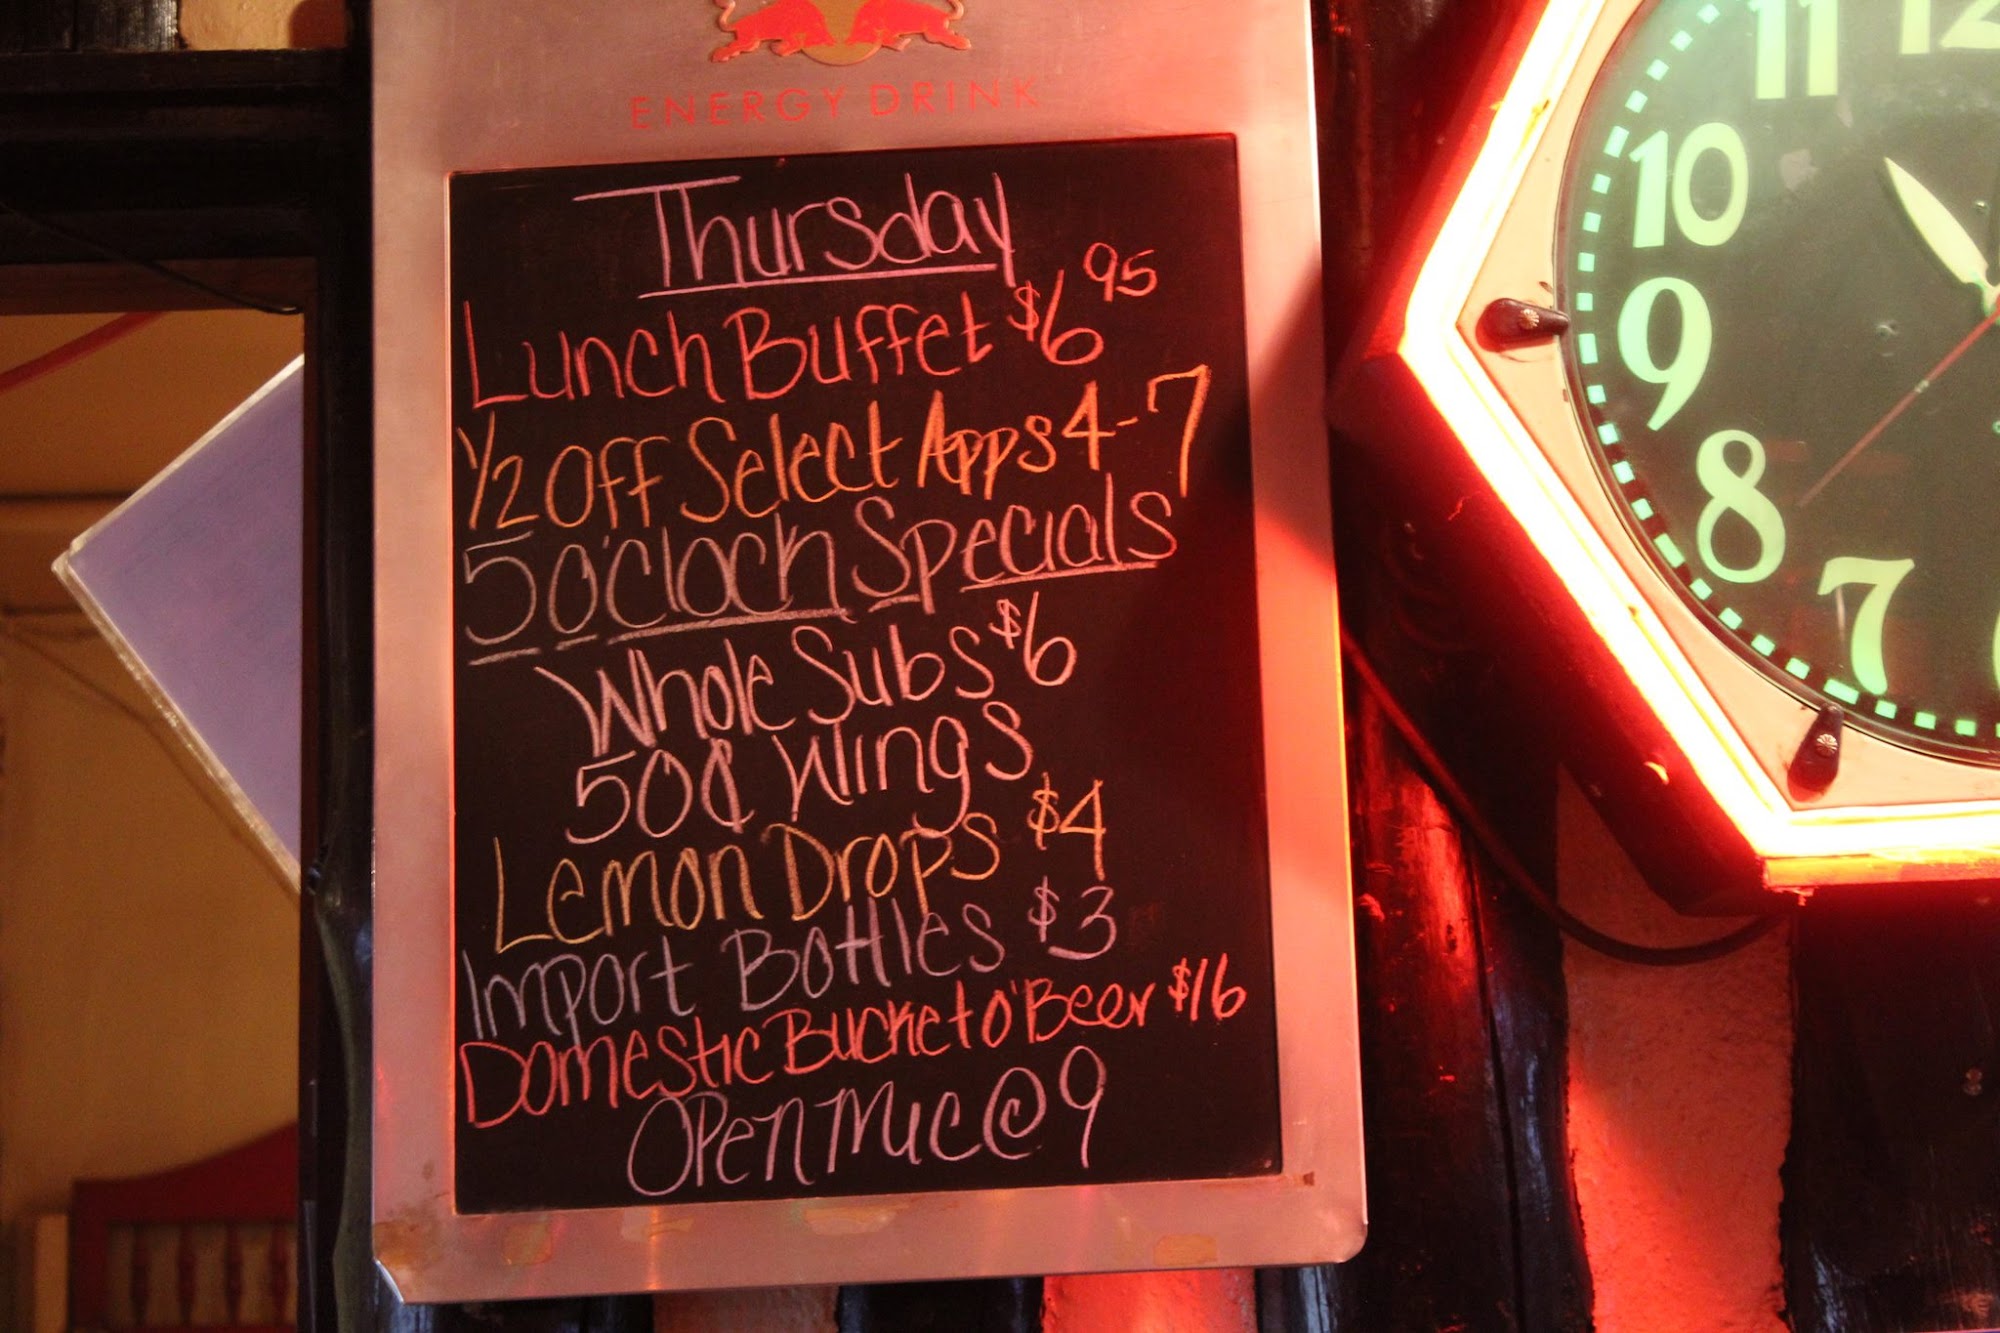 ENERGY DRINK
Thursday
Lunch Buffet $6 95
1/2 Off Select Apps 4-7
5 O'Clock Specials
Whole Subs $6
50¢ Wings
Lemon Drops $4
Import Bottles $3
Domestic Bucket O' Beer $16
Open Mic @ 9
11
12
10
9
8
7